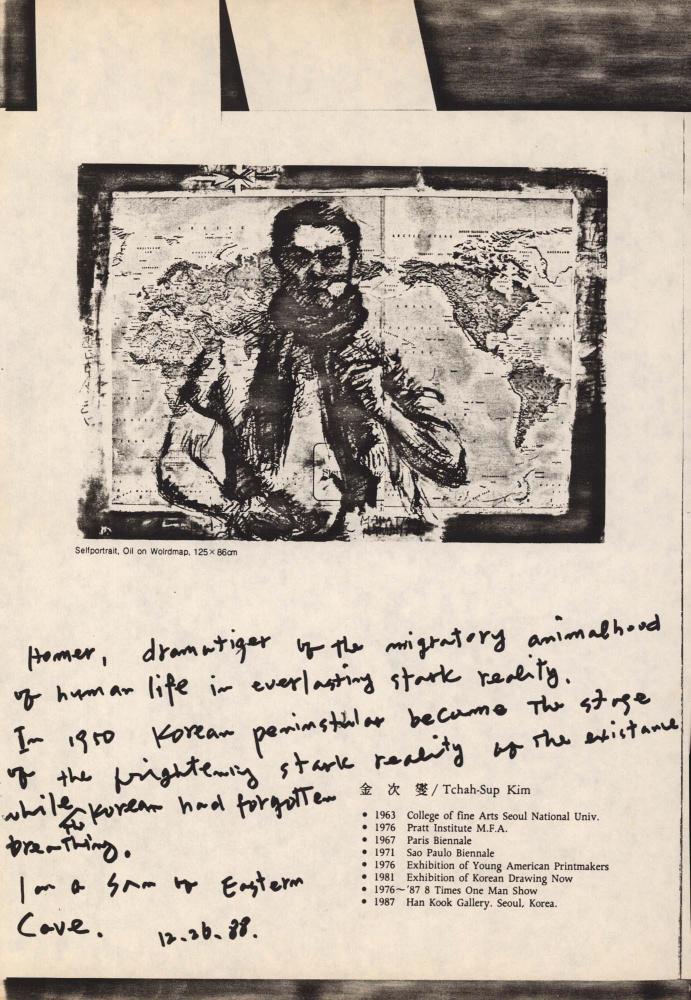 Selfportrait, Oil on Wolrdmap, 125×86cm
Homer, dramatizer of the migratory animalhood
of human life in everlasting stark reality.
In 1950 Korean peninstular became The stage
of the frightening stark reality of The existance
while the Korean had forgotten
breathing.
I am a son of Eastern
Cave. 12.26.88.
金 次 燮 / Tchah-Sup Kim
• 1963 College of fine Arts Seoul National Univ.
• 1976 Pratt Institute M.F.A.
• 1967 Paris Biennale
• 1971 Sao Paulo Biennale
• 1976 Exhibition of Young American Printmakers
• 1981 Exhibition of Korean Drawing Now
• 1976~'87 8 Times One Man Show
• 1987 Han Kook Gallery. Seoul, Korea.